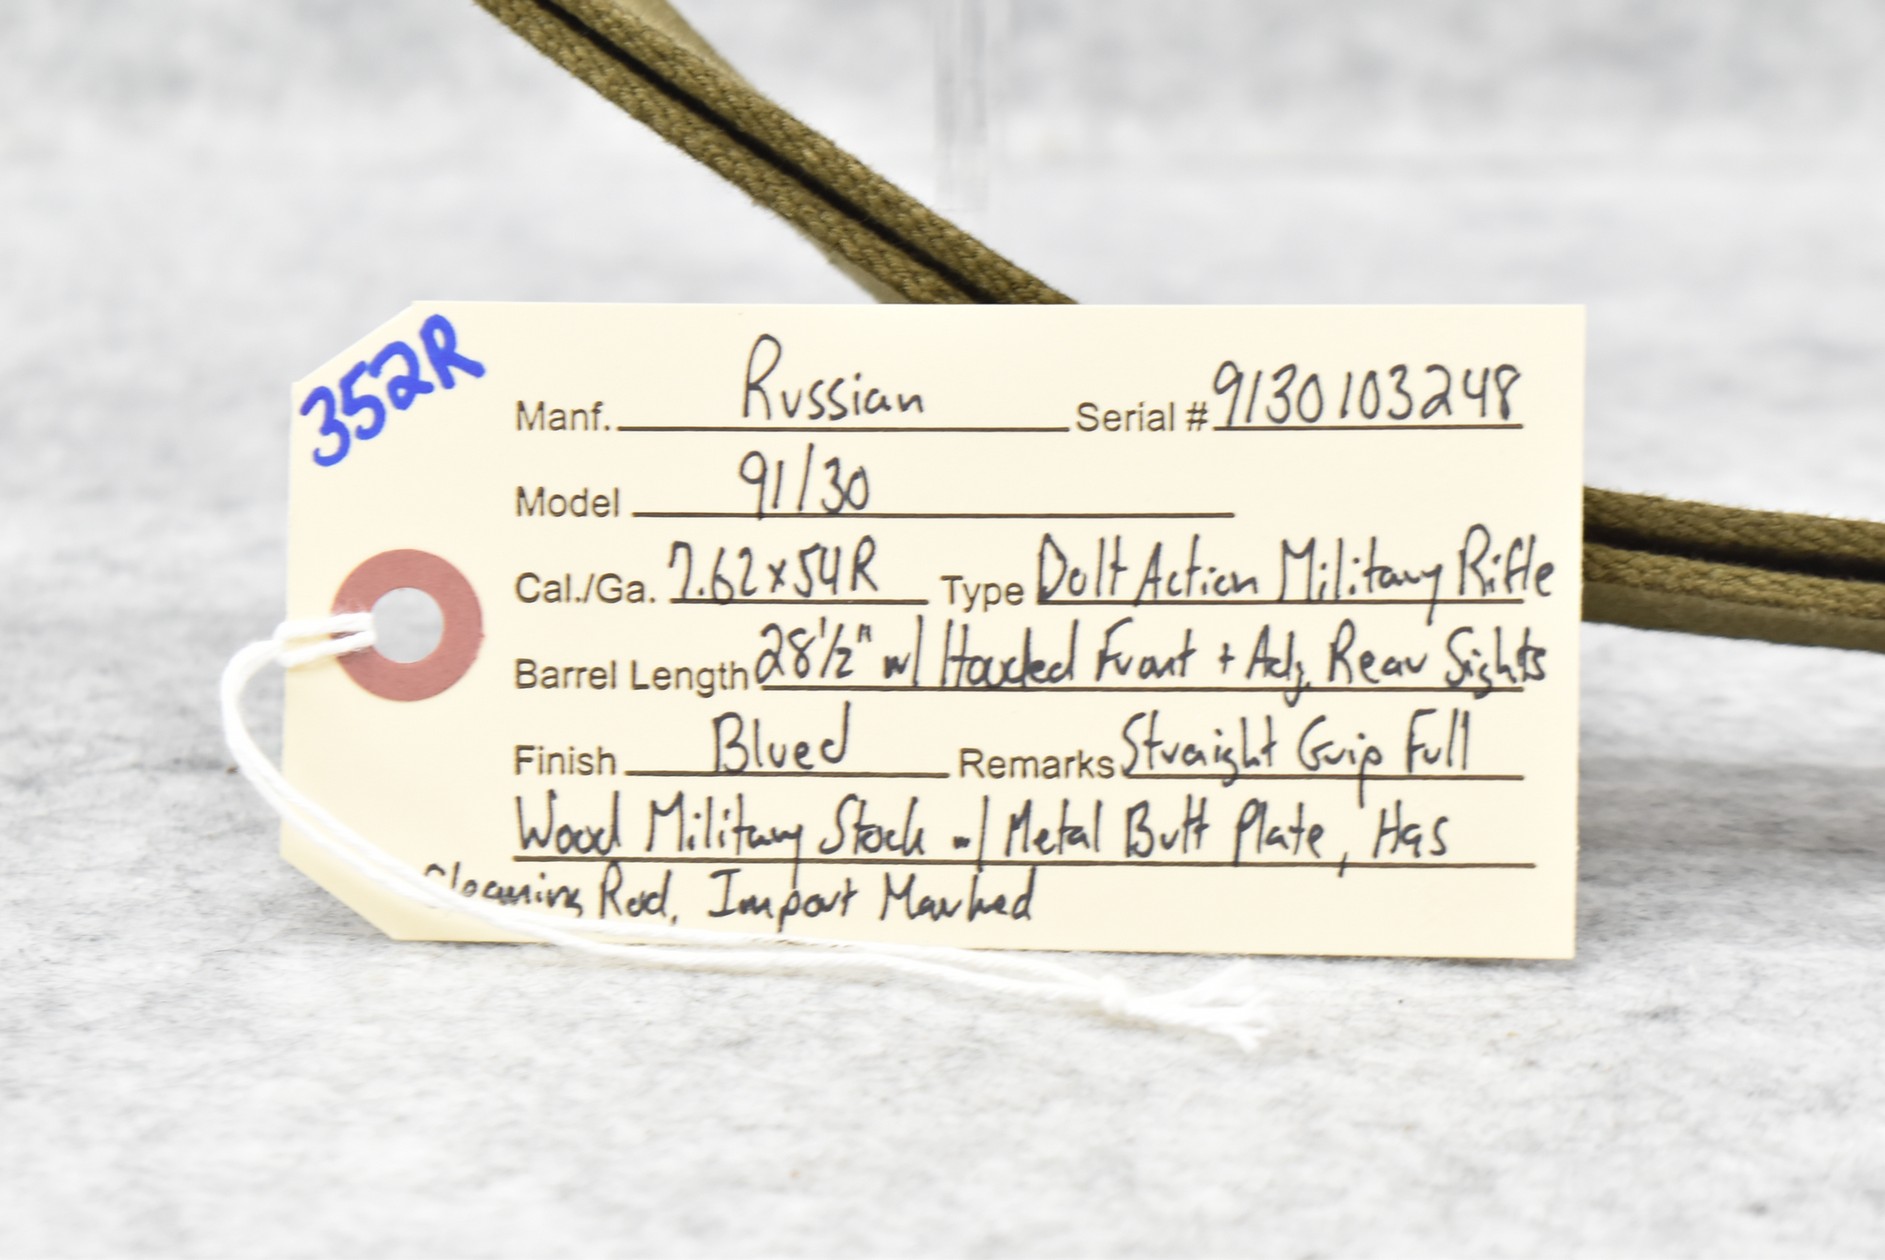 352R
Manf. Russian Serial # 9130103248
Model 91/30
Cal./Ga. 7.62x54R Type Bolt Action Military Rifle
Barrel Length 28 1/2" w/ Hooded Front + Adj. Rear Sights
Finish Blued Remarks Straight Grip Full
Wood Military Stock w/ Metal Butt Plate, Has
Cleaning Rod, Import Marked